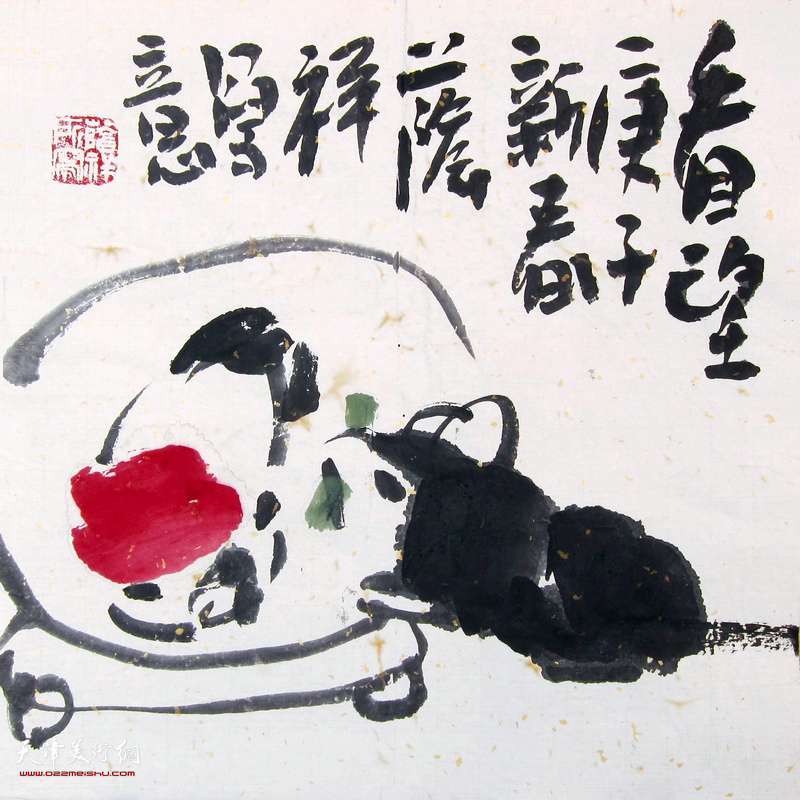 看望
庚子
新春
蔭
祥
寫
意
天津美術網
www.022meishu.com